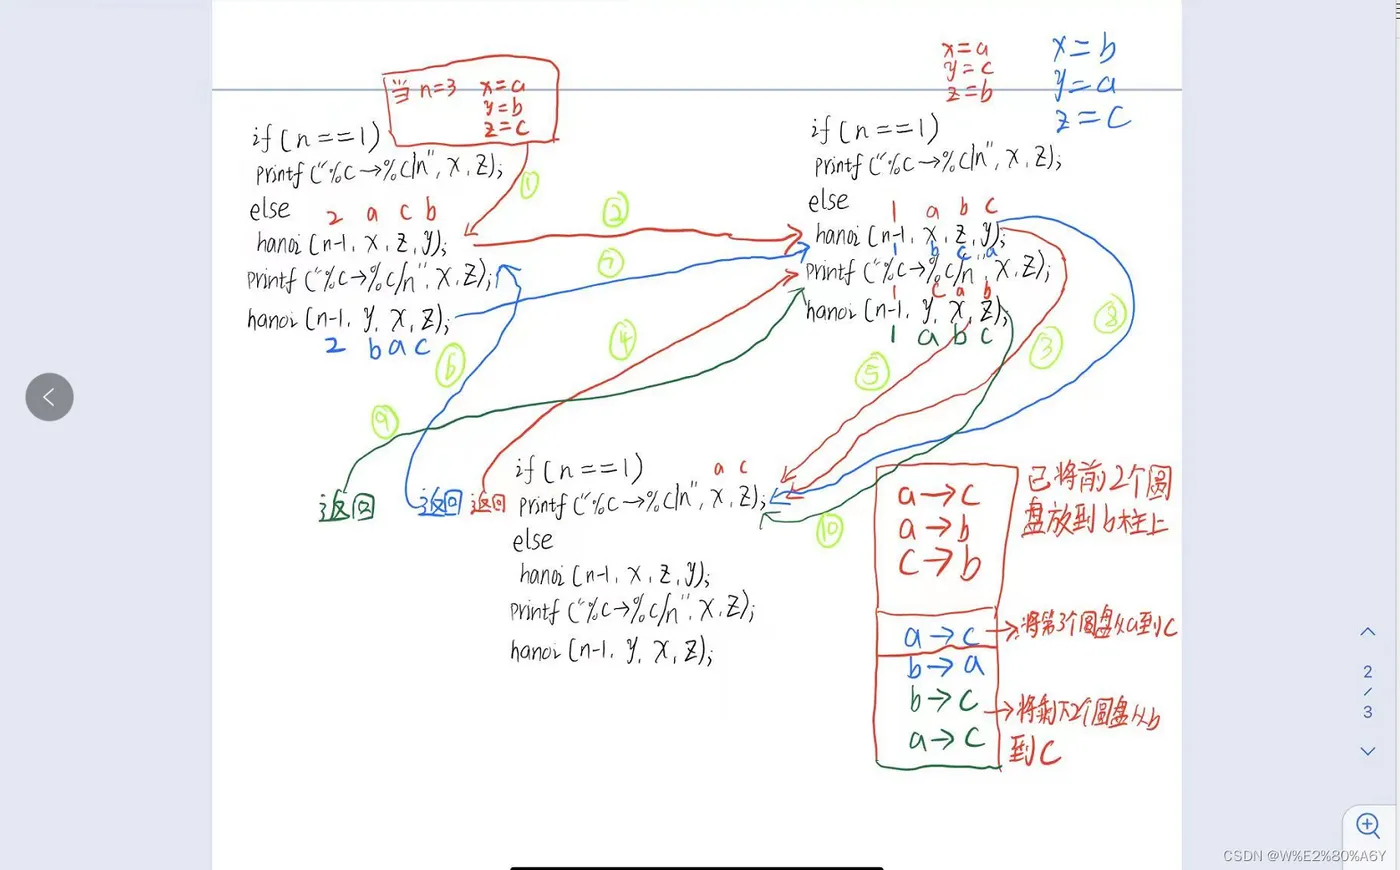 当 n=3 x=a
y=b
z=c
if (n==1)
printf ("%c→%c\n", x, z);
else
2 a c b
hanoi (n-1, x, z, y);
printf ("%c→%c/n", x, z);
hanoi (n-1, y, x, z);
2 b a c
①
②
⑦
④
⑥
⑨
x=a
y=c
z=b
x=b
y=a
z=c
if (n==1)
printf ("%c→%c\n", x, z);
else
1 a b c
hanoi (n-1, x, z, y);
1 b c a
printf ("%c→%c/n", x, z);
1 c a b
hanoi (n-1, y, x, z);
1 a b c
⑧
③
⑤
⑩
返回
返回
返回
if (n==1)
a c
printf ("%c→%c\n", x, z);
else
hanoi (n-1, x, z, y);
printf ("%c→%c/n", x, z);
hanoi (n-1, y, x, z);
a→c
a→b
c→b
已将前2个圆
盘放到b柱上
a→c
→将第3个圆盘从a到c
b→a
b→c
a→c
→将剩下2个圆盘从b
到c
2
/
3
CSDN @W%E2%80%A6Y